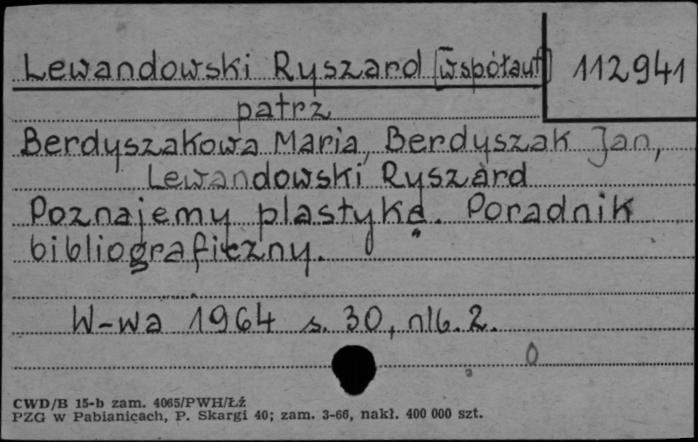 Lewandowski Ryszard [współaut] 112941
patrz
Berdyszakowa Maria, Berdyszak Jan,
Lewandowski Ryszard
Poznajemy plastykę. Poradnik
bibliograficzny.
W-wa 1964 s. 30, nlb. 2.
CWD/B 15-b zam. 4065/PWH/Łź
PZG w Pabianicach, P. Skargi 40; zam. 3-66, nakł. 400 000 szt.